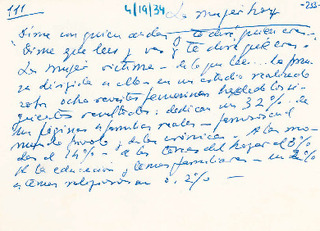 111 4/19/34 La mujer hoy -253-
Dime con quien andas y te diré quien eres.-
Dime que lees y ves y te diré que eres.-
La mujer víctima de lo que lee... la
dirigida a ella en un estudio realizado
ocho revistas femeninas ha dado los si-
guientes resultados: dedican un 32% de
sus páginas a familias reales - personal
mundo frívolo y de las crónicas. A las mo-
das el 14% - a las tareas del hogar el 8%
A la educación y temas familiares un 2%
a temas religiosos un 0.2% -